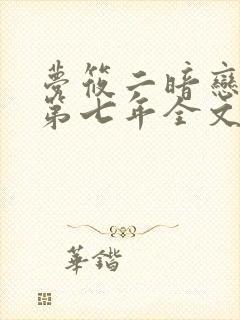 夢筱二暗戀
第七年全文
華鍇